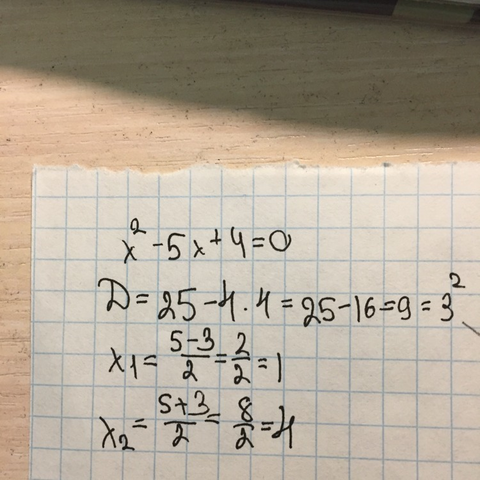 x² - 5x + 4 = 0
D = 25 - 4 · 4 = 25 - 16 = 9 = 3²
x₁ = (5-3)/2 = 2/2 = 1
x₂ = (5+3)/2 = 8/2 = 4